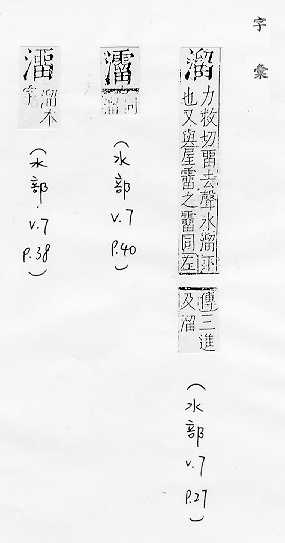 字彙
溜
力救切畱去聲水溜
也又與屋霤之霤同左
傳三進
及溜
(水部 v.7 P.27)
同
溜
(水部 v.7 P.40)
澑
溜本
字
(水部 v.7 P.38)